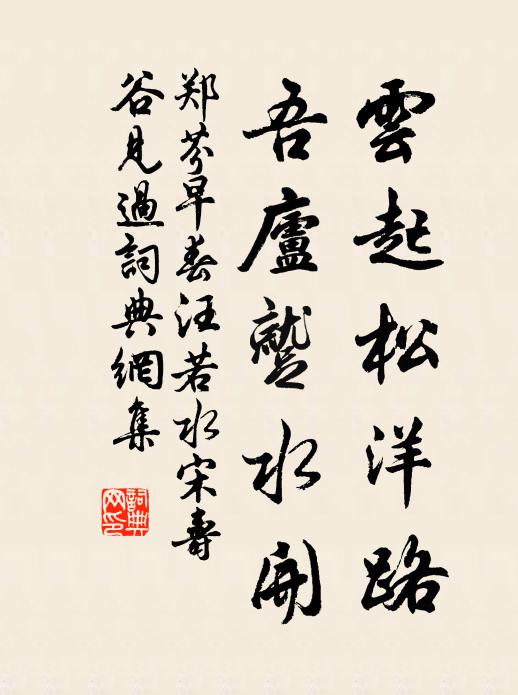 雲起松洋路
吾廬鷲水開
郑芬早春汪若水宋壽
谷見過詞典網集
詞典
网印